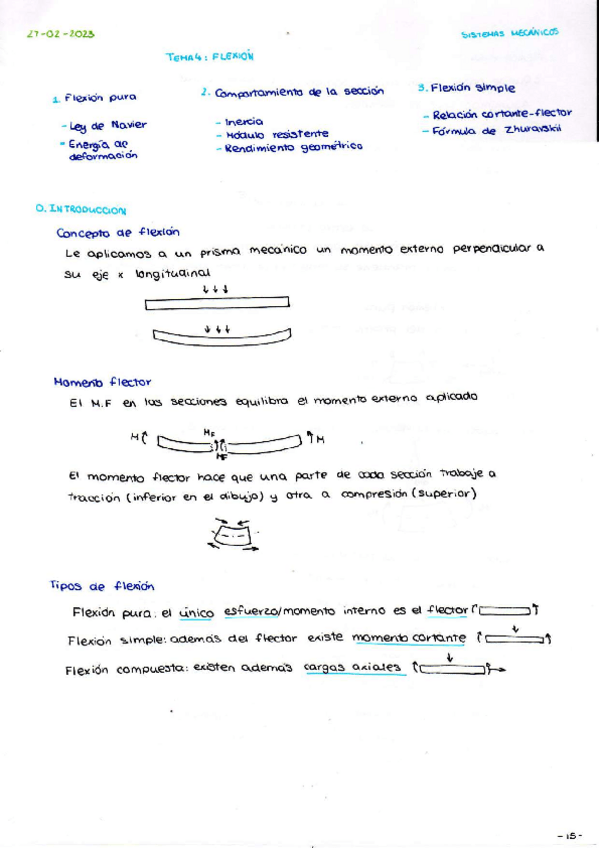 27-02-2023
SISTEMAS MECÁNICOS
TEMA 4: FLEXIÓN
1. Flexión pura
- Ley de Navier
- Energía de
deformación
2. Comportamiento de la sección
- Inercia
- Módulo resistente
- Rendimiento geométrico
3. Flexión simple
- Relación cortante-flector
- Fórmula de Zhuravskii
0. INTRODUCCION
Concepto de flexión
Le aplicamos a un prisma mecánico un momento externo perpendicular a
su eje x longitudinal
Momento flector
El M.F en las secciones equilibra el momento externo aplicado
M MF MF M
El momento flector hace que una parte de cada sección trabaje a
tracción (inferior en el dibujo) y otra a compresión (superior)
Tipos de flexión
Flexión pura: el único esfuerzo/momento interno es el flector
Flexión simple: además del flector existe momento cortante
Flexión compuesta: existen además cargas axiales
- 15 -